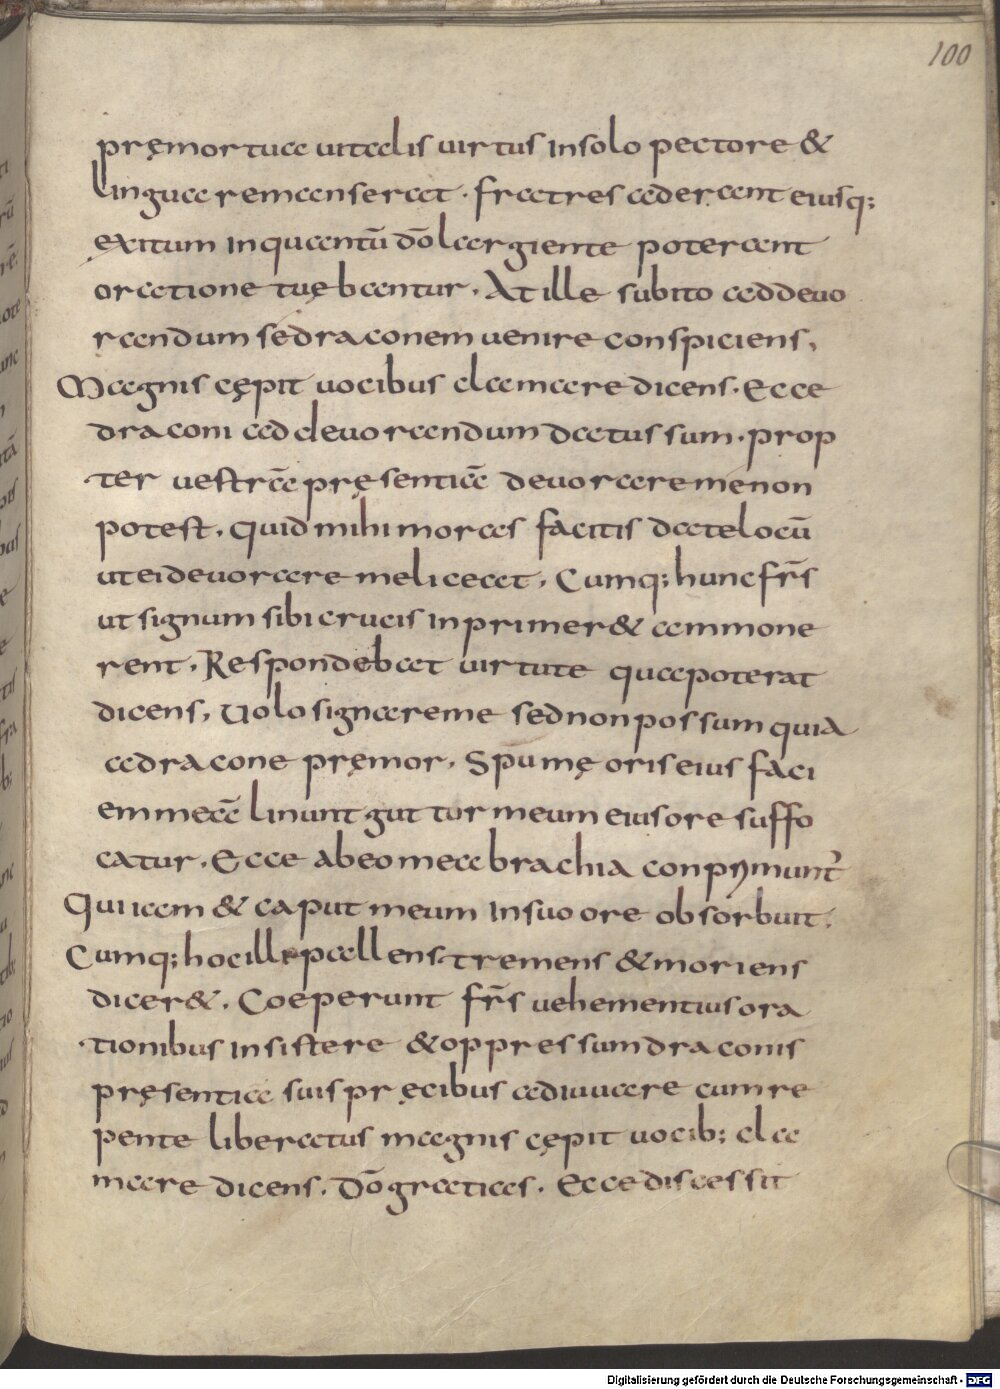 100
pręmortua uitalis uirtus insolo pectore &
lingua remanseret. fratres aderant eiusq;
exitum inquantū dō largiente poterant
oratione tuębantur. At ille subito addeuo
randum sedraconem uenire conspiciens,
Magnis cępit uocibus clamare dicens. Ecce
draconi addeuorandum datus sum. prop
ter uestrā pręsentiā deuorare menon
potest. quid mihi moras facitis datelocū
uteideuorare meliceat. Cumq; hunc fr̄s
ut signum sibi crucis inprimer& ammone
rent. Respondebat uirtute quapoterat
dicens, Uolo signareme sednonpossum quia
adracone pręmor. Spumę oris eius faci
em meā linunt guttur meum eiusore suffo
catur. Ecce abeo mea brachia conprymunt᷒
Qui iam & caput meum insuo ore obsorbuit.
Cumq; hocille pallens tremens & moriens
dicer&. Coeperunt fr̄s uehementius ora
tionibus insistere & oppressum draconis
pręsentia suis pręcibus adiuuare cum re
pente liberatus magnis cępit uocib; cla
mare dicens. Dō gratias. Ecce discessit
Digitalisierung gefördert durch die Deutsche Forschungsgemeinschaft - DFG